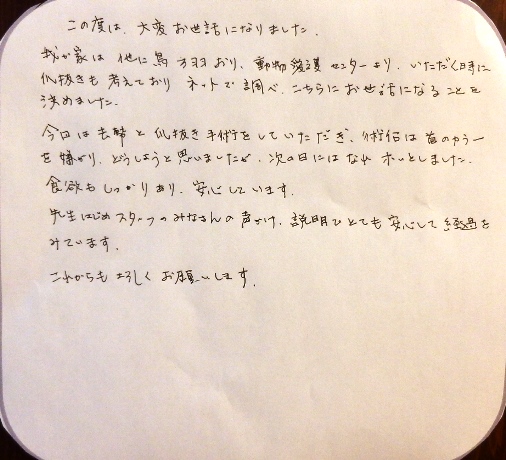 この度は、大変お世話になりました。
我が家は他に鳥が羽おり、動物愛護センターより、いただく時に
爪抜きも考えており ネットで調べ、こちらにお世話になることを
決めました。
今回は去勢と爪抜き手術をしていただき、術后は首のカラー
を嫌がり、どうしようと思いましたが、次の日にはなれ ホッとしました。
食欲もしっかりあり、安心しています。
先生はじめスタッフのみなさんの声かけ、説明でとても安心して経過を
みています。
これからも よろしく お願いします。